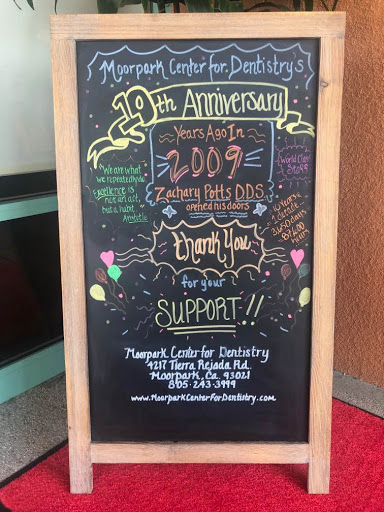 Moorpark Center for Dentistry's
10th Anniversary
Years Ago In
2009
Zachary Potts DDS
opened his doors
"We are what
we repeatedly do
Excellence is
not an act,
but a habit."
Aristotle
World Class
Staff
10 Years
3,650 days
hours
Thank You
for your
SUPPORT!!
Moorpark Center for Dentistry
4217 Tierra Rejada Rd.
Moorpark, Ca. 93021
805-243-3999
www.MoorparkCenterForDentistry.com